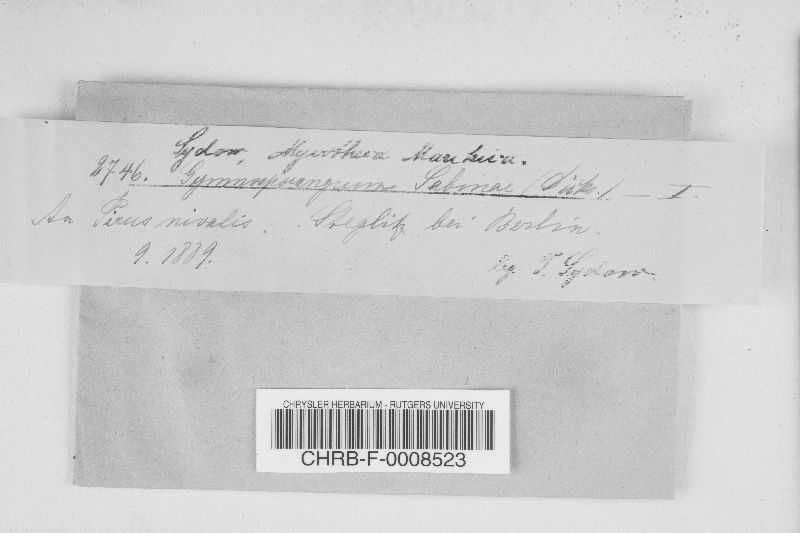 Sydow, Mycotheca Marchica.
2746. Gymnosporangium Sabinae (Dicks.) — I.
An Pirus nivalis. Steglitz bei Berlin.
9. 1889. leg. P. Sydow.
CHRYSLER HERBARIUM - RUTGERS UNIVERSITY
CHRB-F-0008523